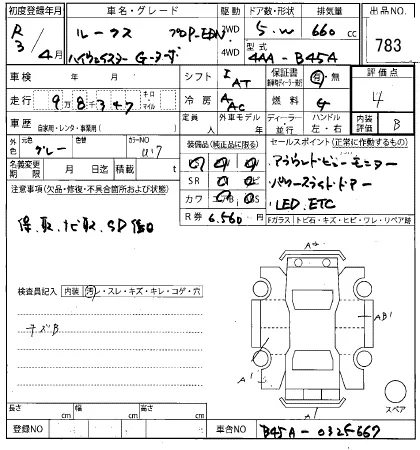 初度登録年月 車名・グレード 駆動 ドア数・形状 排気量 出品NO.
R 3 / 4月 ルークス プロP-EDN 2WD 5.W 660 cc 783
ハイウェイスター Gターボ 4WD 型式 4AA-B45A
車検 年 月 シフト I AT 保証書 有・無 評価点
走行 9万8千347 キロ マイル 冷房 A AC 燃料 4
車歴 自家用・レンタ・事業用( ) 定員 人 外車モデル 年 ディーラー 並行 ハンドル 左・右 内装評価 B
外色 元色 グレー 色 カラーNO 装備品(純正品に限る) セールスポイント(正常に作動するもの)
名義変更期限 月 日迄 積載 t ・アラウンドビューモニター
注意事項(欠品・修復・不具合箇所および状態) SR ・パワースライドドアー
カワ ・LED.ETC
保.取.ナビ取.SD R券 6,560円 Fガラス トビ石・キズ・ヒビ・ワレ・リペア跡
A2
検査員記入 内装 汚レ・スレ・キズ・キレ・コゲ・穴
AB1
キズB
A1
A1
スペア
長さ cm 幅 cm 高さ cm
登録NO 車台NO B45A-0325667